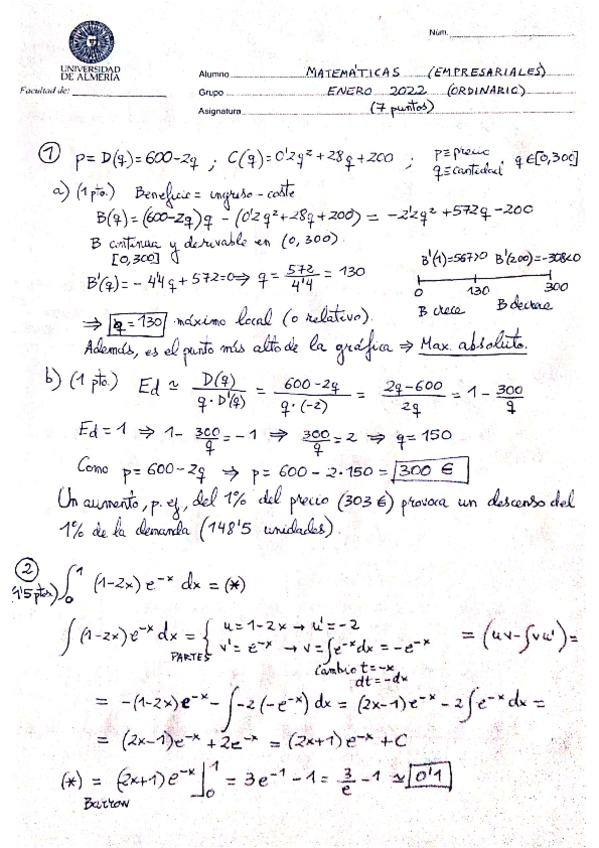 Núm.
UNIVERSIDAD
DE ALMERÍA
Facultad de:
Alumno MATEMÁTICAS (EMPRESARIALES)
Grupo ENERO 2022 (ORDINARIO)
Asignatura (7 puntos)
① p = D(q) = 600-2q ; C(q) = 0'2q² + 28q + 200 ; p≡precio q≡cantidad, q∈[0,300]
a) (1 pto.) Beneficio = ingreso - coste
B(q) = (600-2q)q - (0'2q² + 28q + 200) = -2'2q² + 572q - 200
B continua y derivable en (0, 300).
[0,300]
B'(1)=567>0 B'(200)=-308<0
B'(q) = -4'4q + 572 = 0 ⇒ q = 572/4'4 = 130
0 130 300
B crece B decrece
⇒ q = 130 máximo local (o relativo).
Además, es el punto más alto de la gráfica ⇒ Max. absoluto.
b) (1 pto.) Ed ≃ D(q)/(q·D'(q)) = (600-2q)/(q·(-2)) = (2q-600)/2q = 1 - 300/q
Ed = 1 ⇒ 1 - 300/q = -1 ⇒ 300/q = 2 ⇒ q = 150
Como p = 600-2q ⇒ p = 600 - 2·150 = 300 €
Un aumento, p. ej, del 1% del precio (303 €) provoca un descenso del
1% de la demanda (148'5 unidades).
②
(1'5 ptos) ∫₀¹ (1-2x) e⁻ˣ dx = (*)
∫ (1-2x) e⁻ˣ dx = { u = 1-2x → u' = -2
PARTES v' = e⁻ˣ → v = ∫e⁻ˣdx = -e⁻ˣ = (uv - ∫vu') =
Cambio t = -x
dt = -dx
= -(1-2x)e⁻ˣ - ∫-2(-e⁻ˣ) dx = (2x-1)e⁻ˣ - 2∫e⁻ˣ dx =
= (2x-1)e⁻ˣ + 2e⁻ˣ = (2x+1)e⁻ˣ + C
(*) = (2x+1)e⁻ˣ]₀¹ = 3e⁻¹ - 1 = 3/e - 1 ≃ 0'1
Barrow